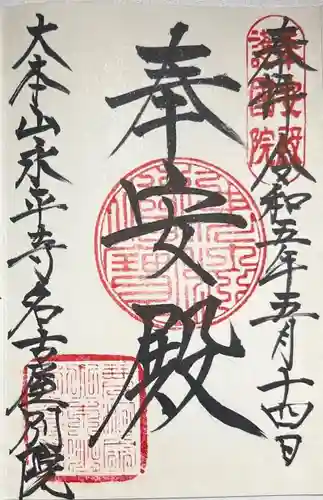 奉拝 令和五年五月十四日
奉安殿
大本山永平寺名古屋別院
護国院
奉安殿